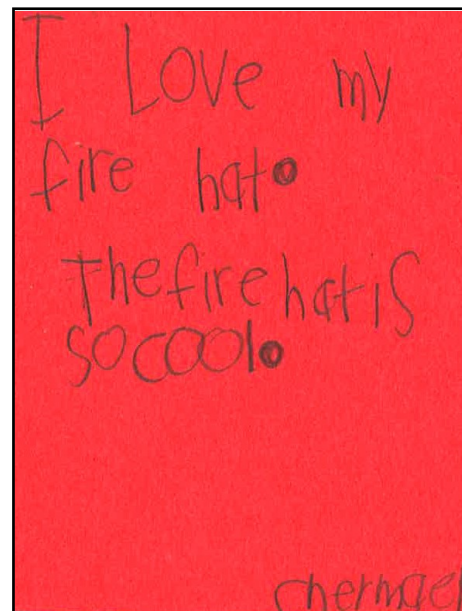 I Love my
fire hat.
The fire hat is
so cool.
chermael